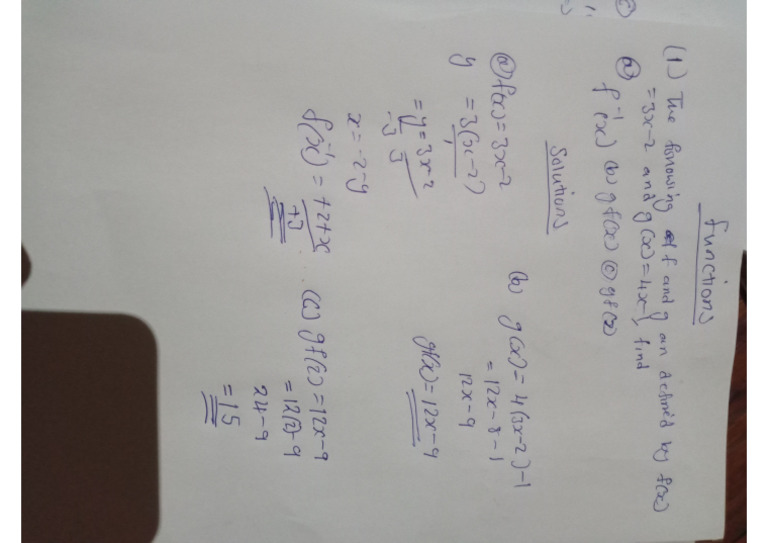 Functions
(1) The following of f and g an defined by f(x)
= 3x-2 and g(x)=4x-1, find
(a) f⁻¹(x) (b) gf(x) (c) gf(2)
Solutions
(a) f(x) = 3x-2
y = 3(x-2)
= y = 3x-2
-3 3
x = -2-y
f(x)⁻¹ = +2+x
+3
(b) g(x) = 4(3x-2)-1
= 12x-8-1
12x-9
gf(x) = 12x-9
(c) gf(2) = 12x-9
= 12(2)-9
24-9
= 15